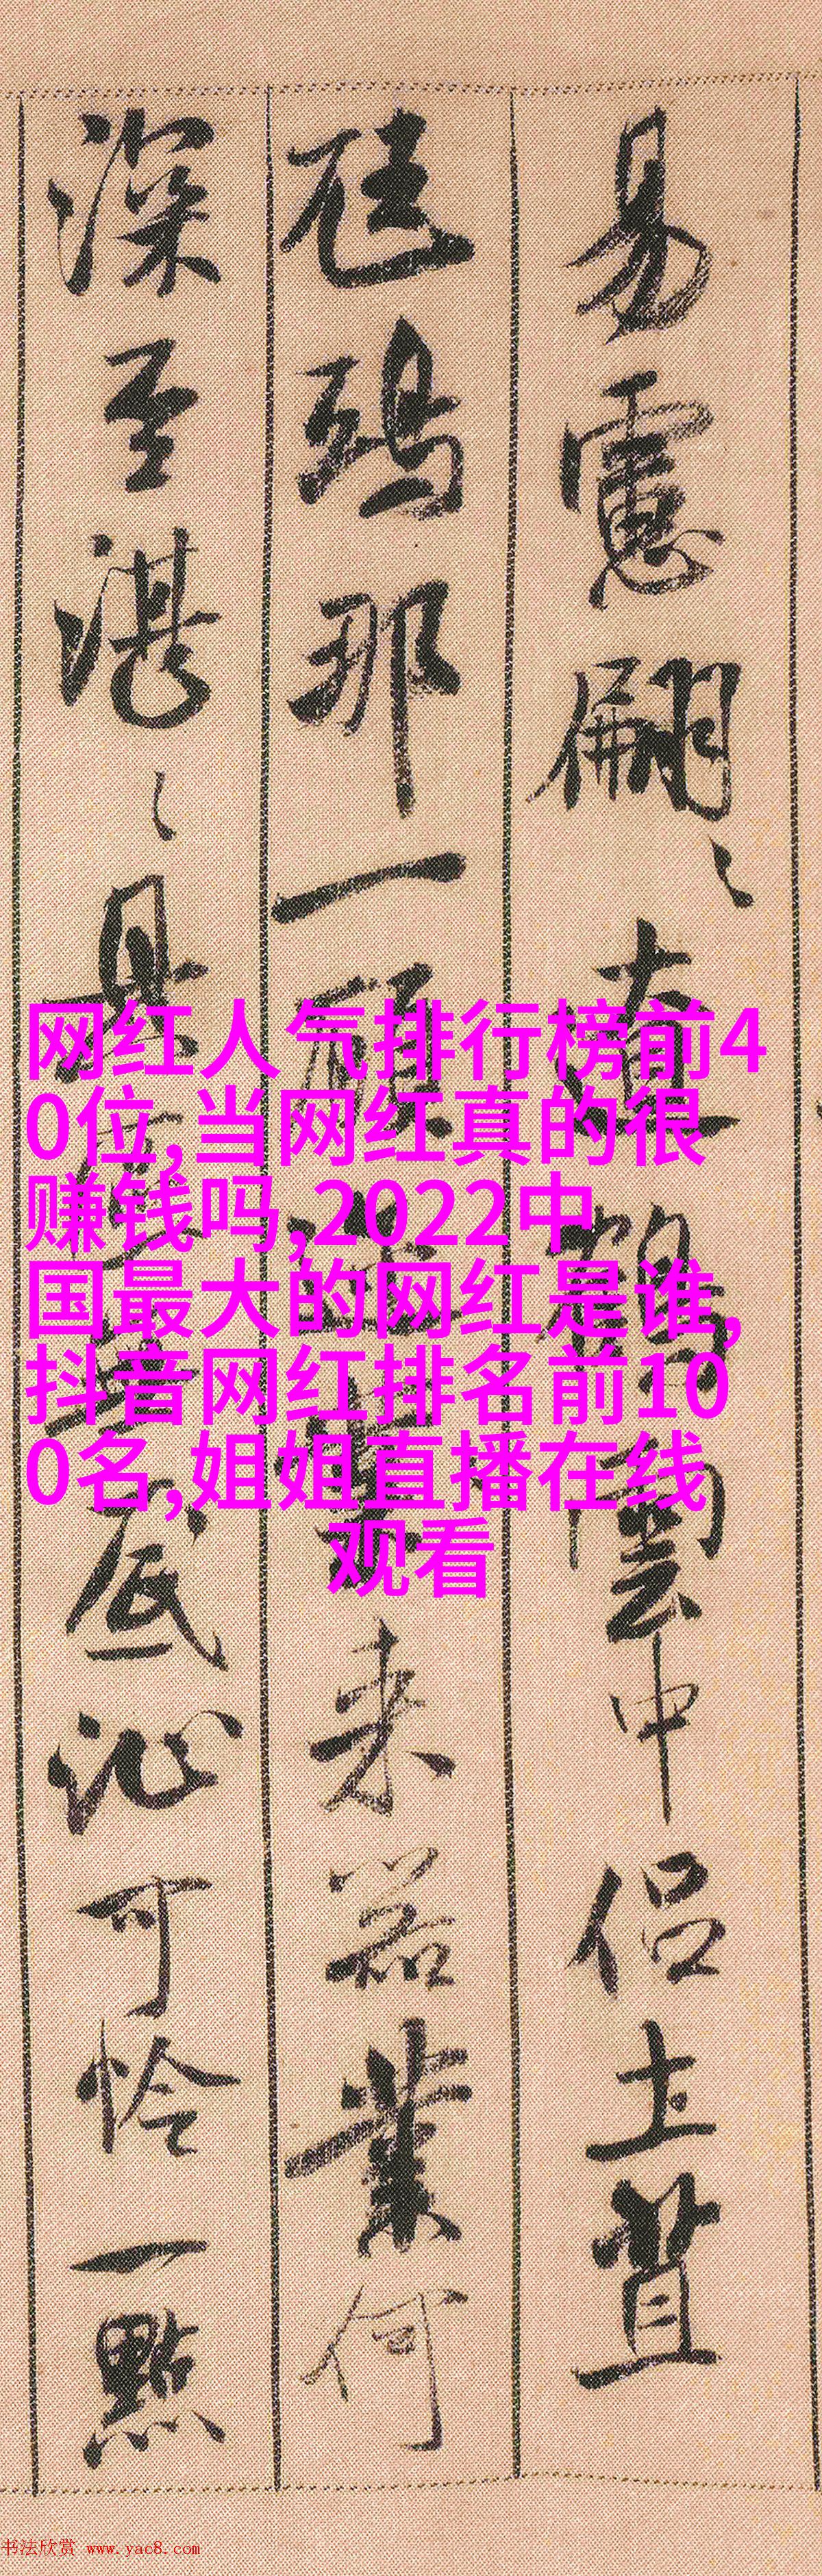 易慮翩〻直鶴雲中侣土苴
砡鵄那一顾
来益業何
深至湛〻
底沁可怜一點
网红人气排行榜前4
0位,当网红真的很
赚钱吗,2022中
国最大的网红是谁,
抖音网红排名前10
0名,姐姐直播在线
观看
书法欣赏 www.yac8.com